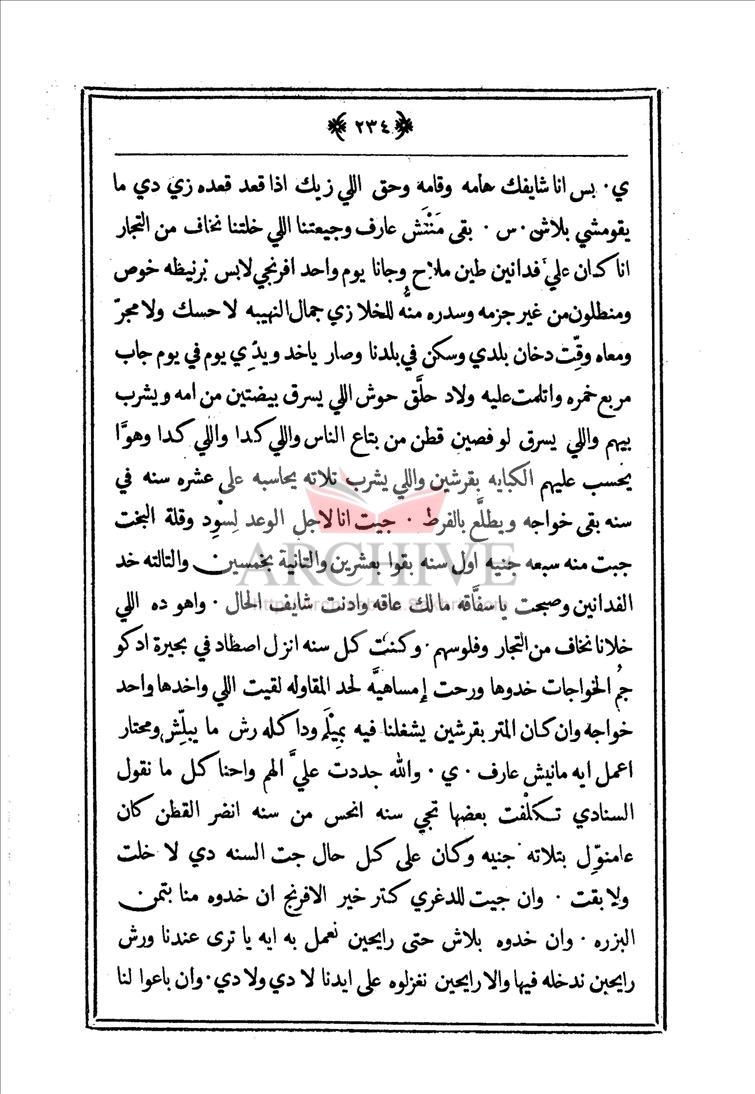 ﴿٢٣٤﴾
ي ٠ بس انا شايفك هامه وقامه وحق اللي زيك اذا قعد قعده زي دي ما
يقومشي بلاش ٠ س ٠ بقى مَنْتَش عارف وجيعتنا اللي خلتنا نخاف من التجار
انا كدان علي فدانين طين ملاح وجانا يوم واحد افرنجي لابس برنيظه خوص
ومنطلون من غير جزمه وسدره منُّه للخلا زي جمال النهيبه لا حسك ولا مجرّ
ومعاه وقِّت دخان بلدي وسكن في بلدنا وصار ياخد ويدّي يوم في يوم جاب
مربع خمره واتلمت عليه ولاد حلَّق حوش اللي يسرق بيضتين من امه ويشرب
بيهم واللي يسرق لو فصين قطن من بتاع الناس واللي كدا واللي كدا وهوَّا
يحسب عليهم الكبايه بقرشين واللي يشرب تلاته يحاسبه على عشره سنه في
سنه بقى خواجه ويطلَّع بالفرط ٠ جيت انا لاجل الوعد لِسوِد وقلة البخت
جبت منه سبعه جنيه اول سنه بقوا بعشرين والتانية بخمسين والتالته خد
الفدانين وصبحت يا سفَّاقه مالك عاقه وادنت شايف الحال ٠ واهو ده اللي
خلانا نخاف من التجار وفلوسهم ٠ وكنت كل سنه انزل اصطاد في بحيرة ادكو
جمُ الخواجات خدوها ورحت إمساهيَّه لحد المقاوله لقيت اللي واخدها واحد
خواجه وان كان المتر بقرشين يشغلنا فيه بمِيْلَه ودا كله رش ما يبلّش ومحتار
اعمل ايه مانيش عارف ٠ ي ٠ والله جددت عليَّ الهم واحنا كل ما نقول
السنادي تكلفت بعضها تجي سنه انحس من سنه انضر القطن كان
عامنوِّل بتلاته جنيه وكان على كل حال جت السنه دي لا خلت
ولا بقت ٠ وان جيت للدغري كتر خير الافرنج ان خدوه منا بتمن
البزره ٠ وان خدوه بلاش حتى رايحين نعمل به ايه يا ترى عندنا ورش
رايحين ندخله فيها والا رايحين نغزلوه على ايدنا لا دي ولا دي ٠ وان باعوا لنا
ARCHIVE